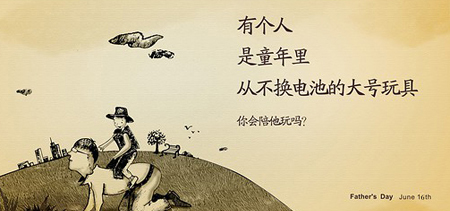 有个人
是童年里
从不换电池的大号玩具
你会陪他玩吗?
Father's Day June 16th